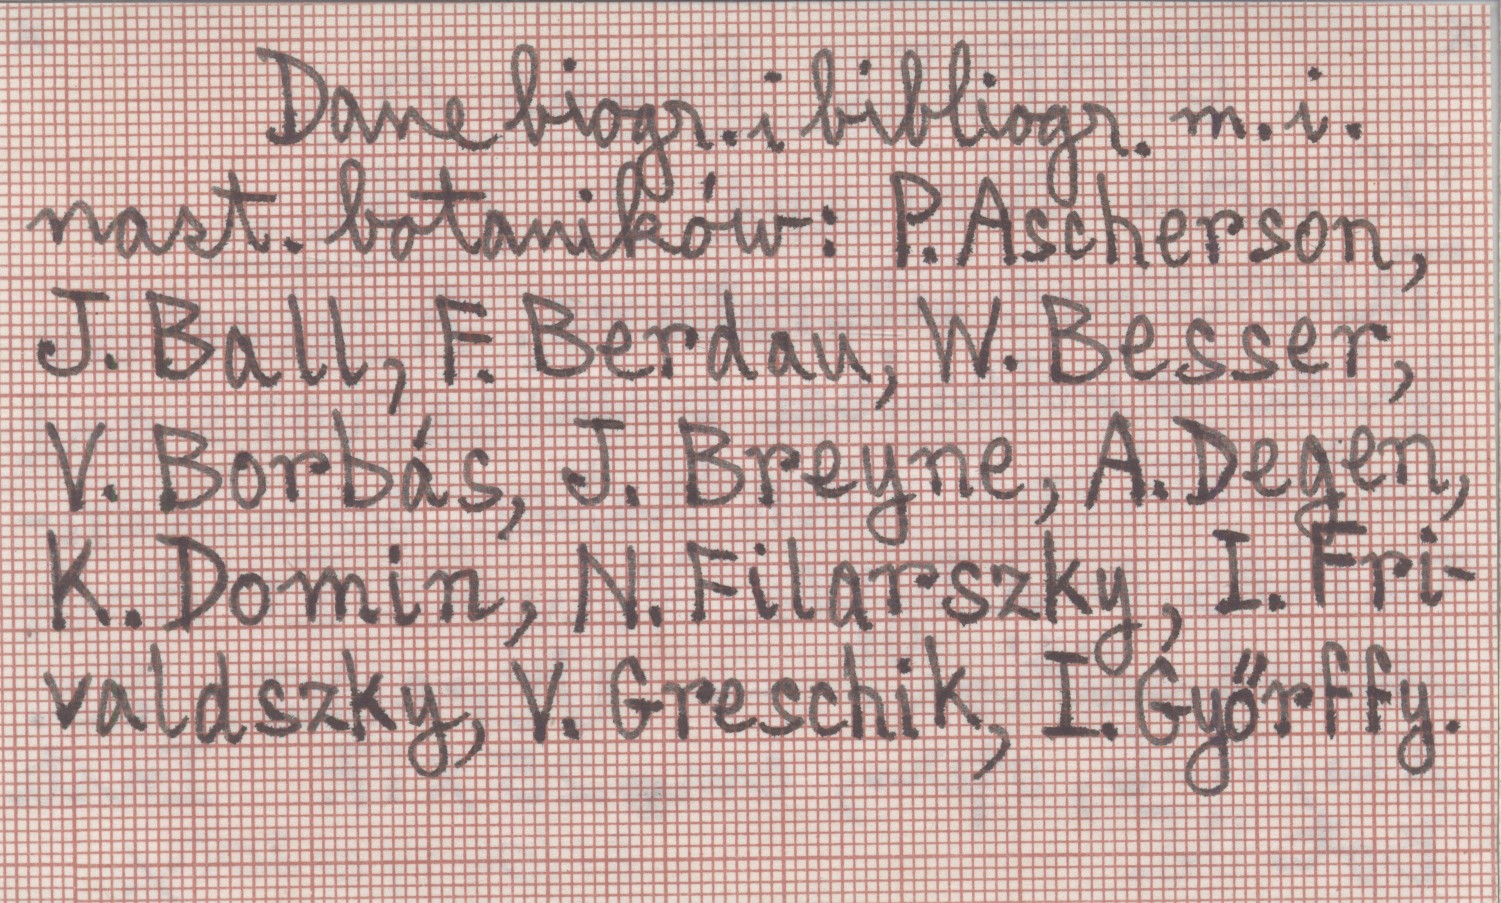 Dane biogr. i bibliogr. m. i.
nast. botaników: P. Ascherson,
J. Ball, F. Berdau, W. Besser,
V. Borbás, J. Breyne, A. Degen,
K. Domin, N. Filarszky, I. Fri-
valdszky, V. Greschik, I. Győrffy.